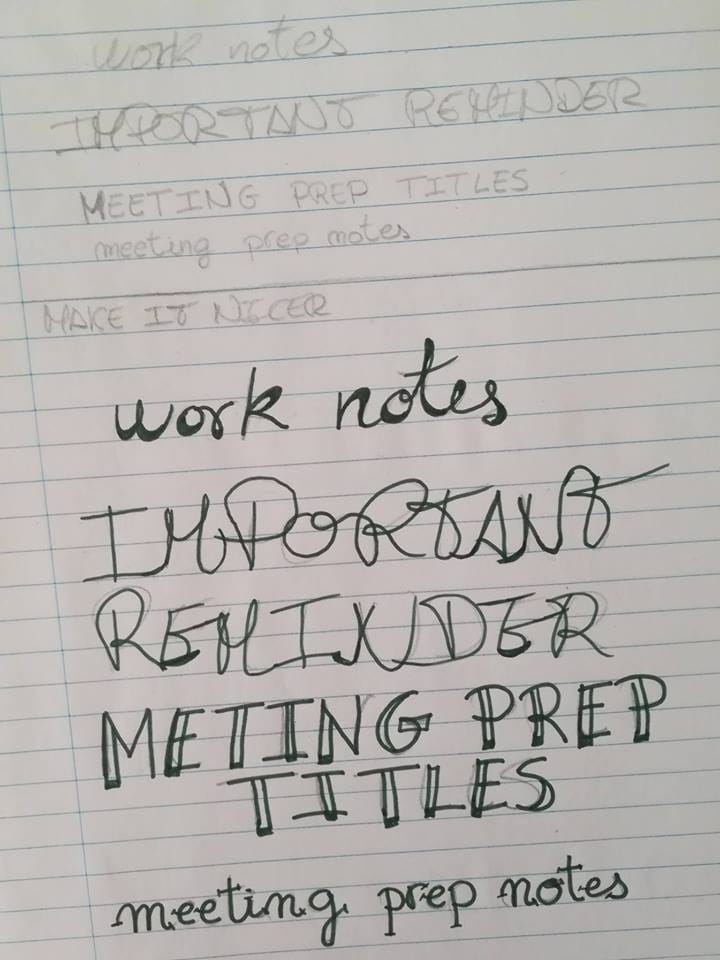 work notes
IMPORTANT REMINDER
MEETING PREP TITLES
meeting prep notes
MAKE IT NICER
work notes
IMPORTANT
REMINDER
METING PREP
TITLES
meeting prep notes